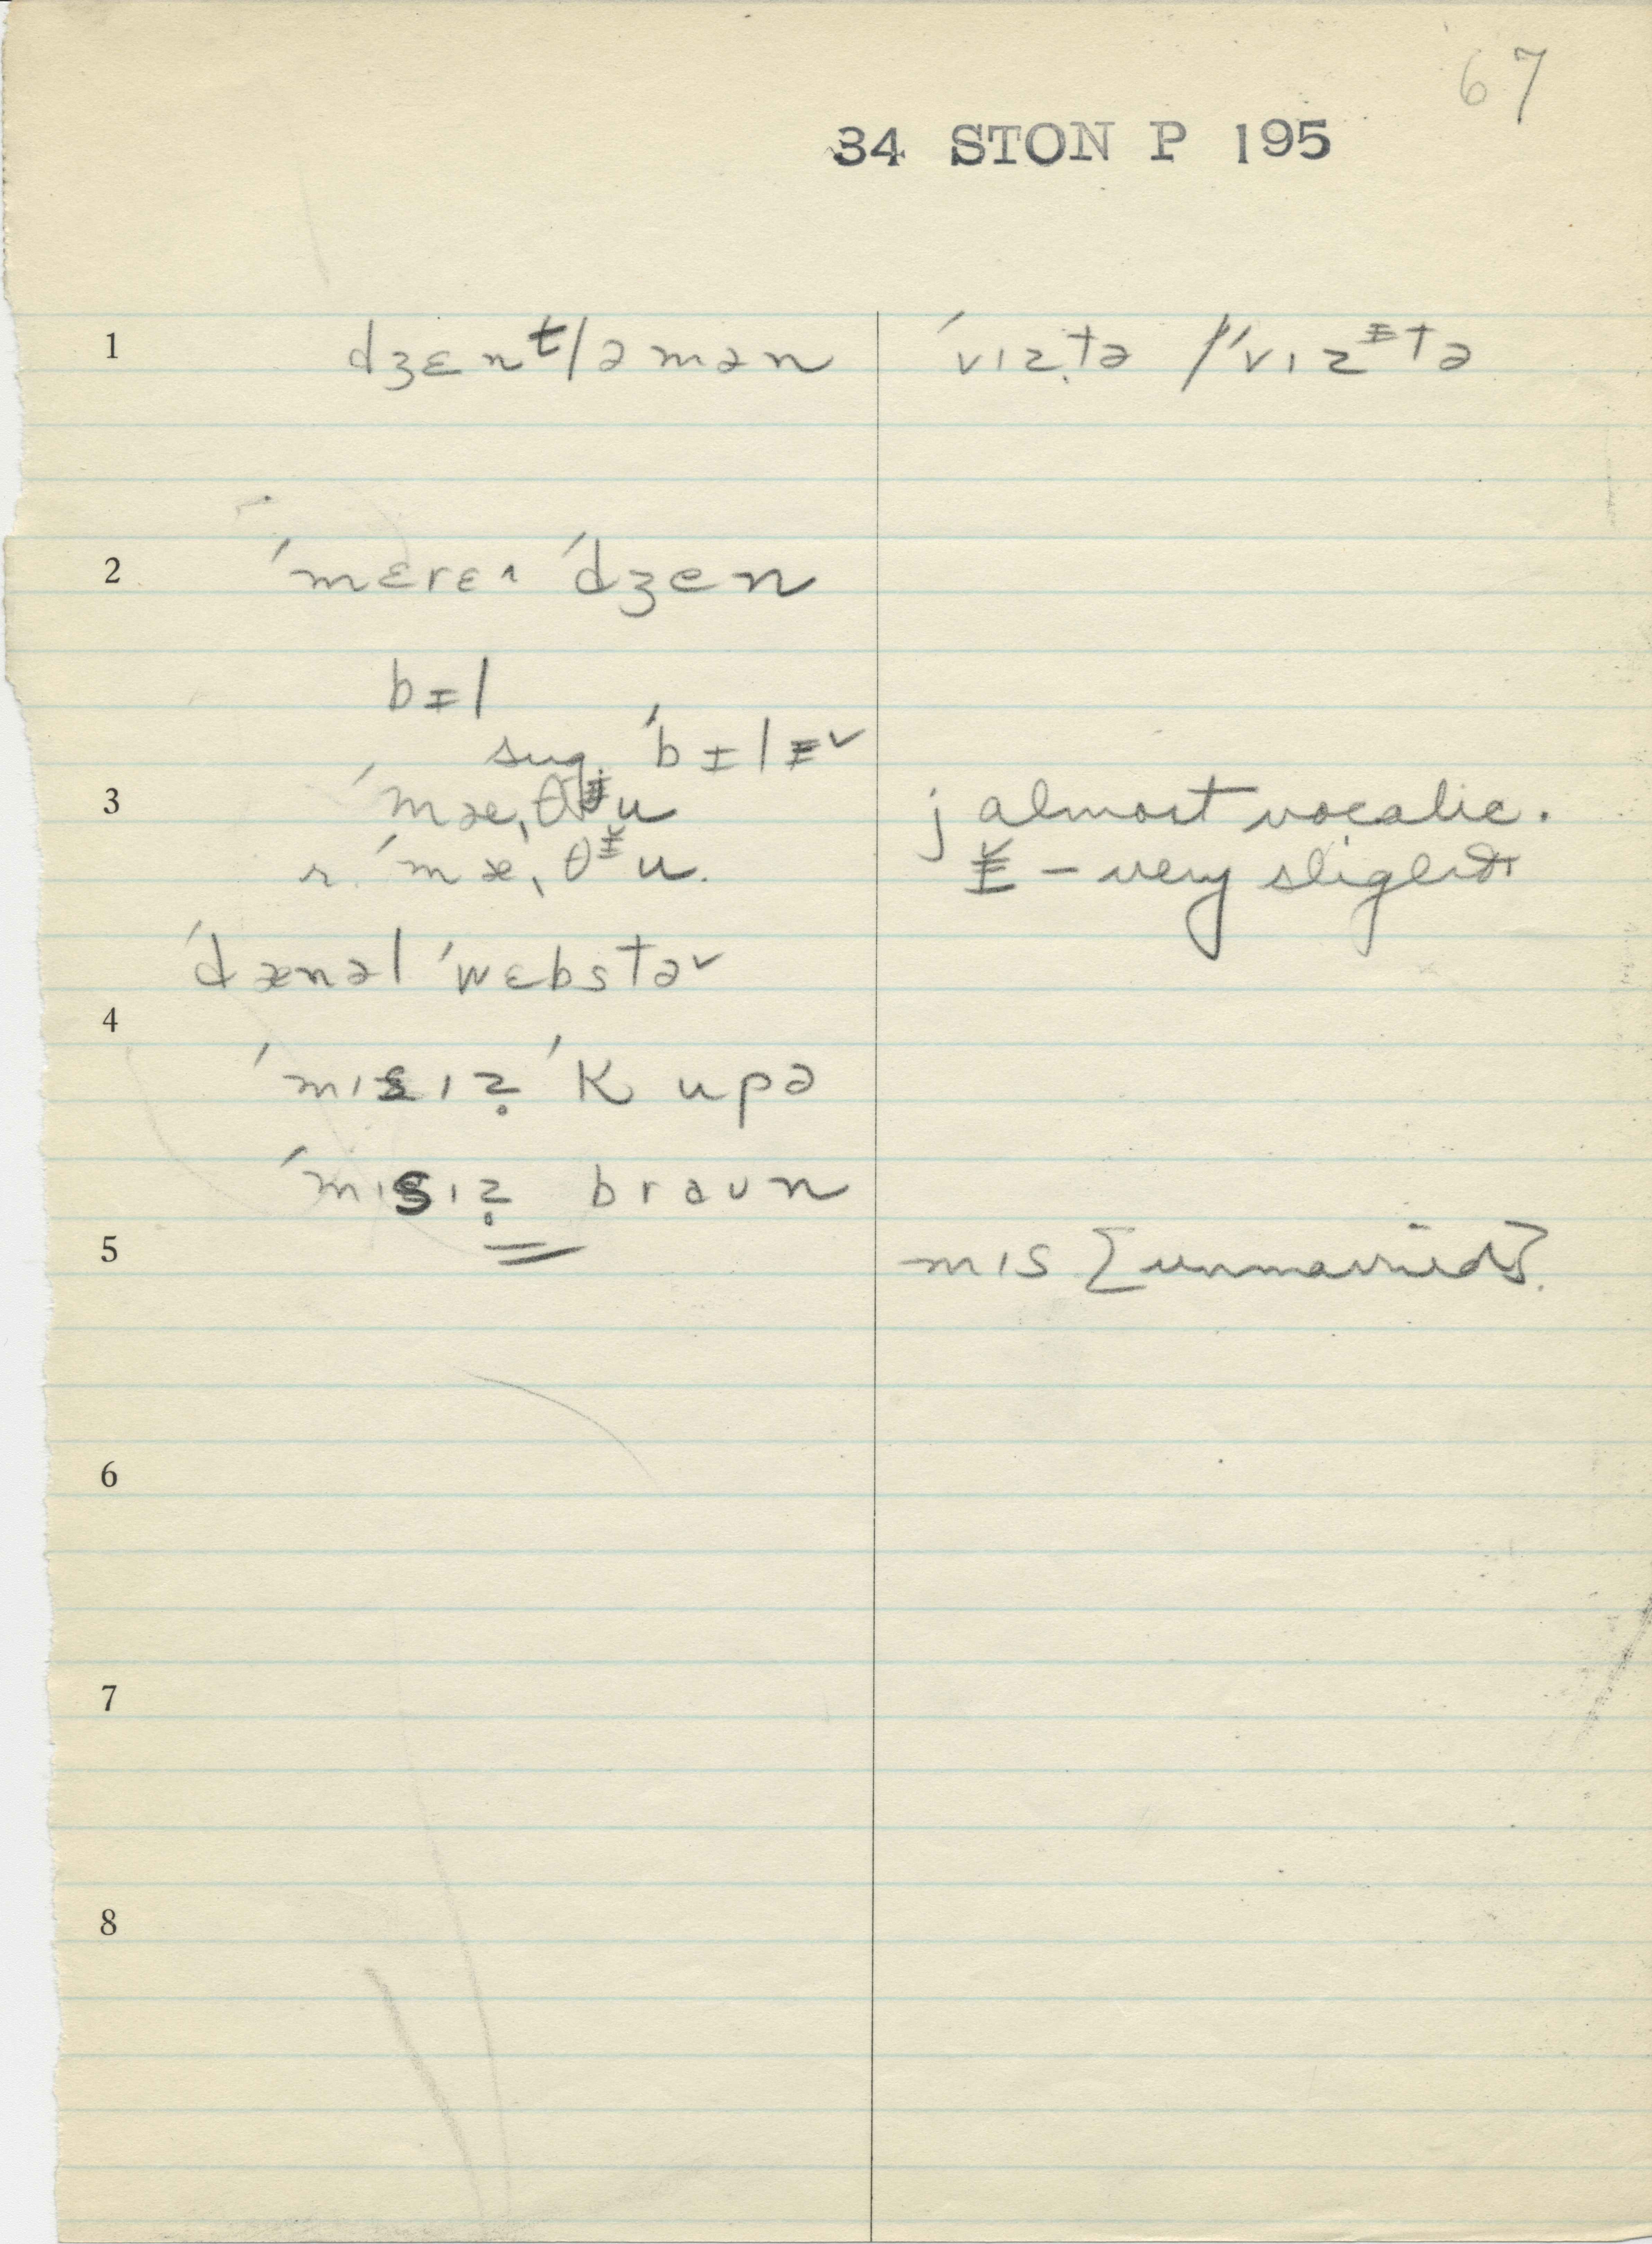 67
34 STON P 195
1 dʒɛnᵗləmən ˈvɪz̥tə / ˈvɪzᵻtə
2 ˈmɛrɛ˄ ˈdʒen
bɪl
sug. ˈbɪlᵻ˅
3 ˈmæ,θju j almost vocalic.
r. ˈmæ,θᵻ̆u. ᵻ̆ – very slight
ˈdænəl ˈwɛbstə˅
4
ˈmɪsɪz̥ ˈkupə
ˈmɪsɪz̥ braun
5 mɪs [unmarried].
6
7
8